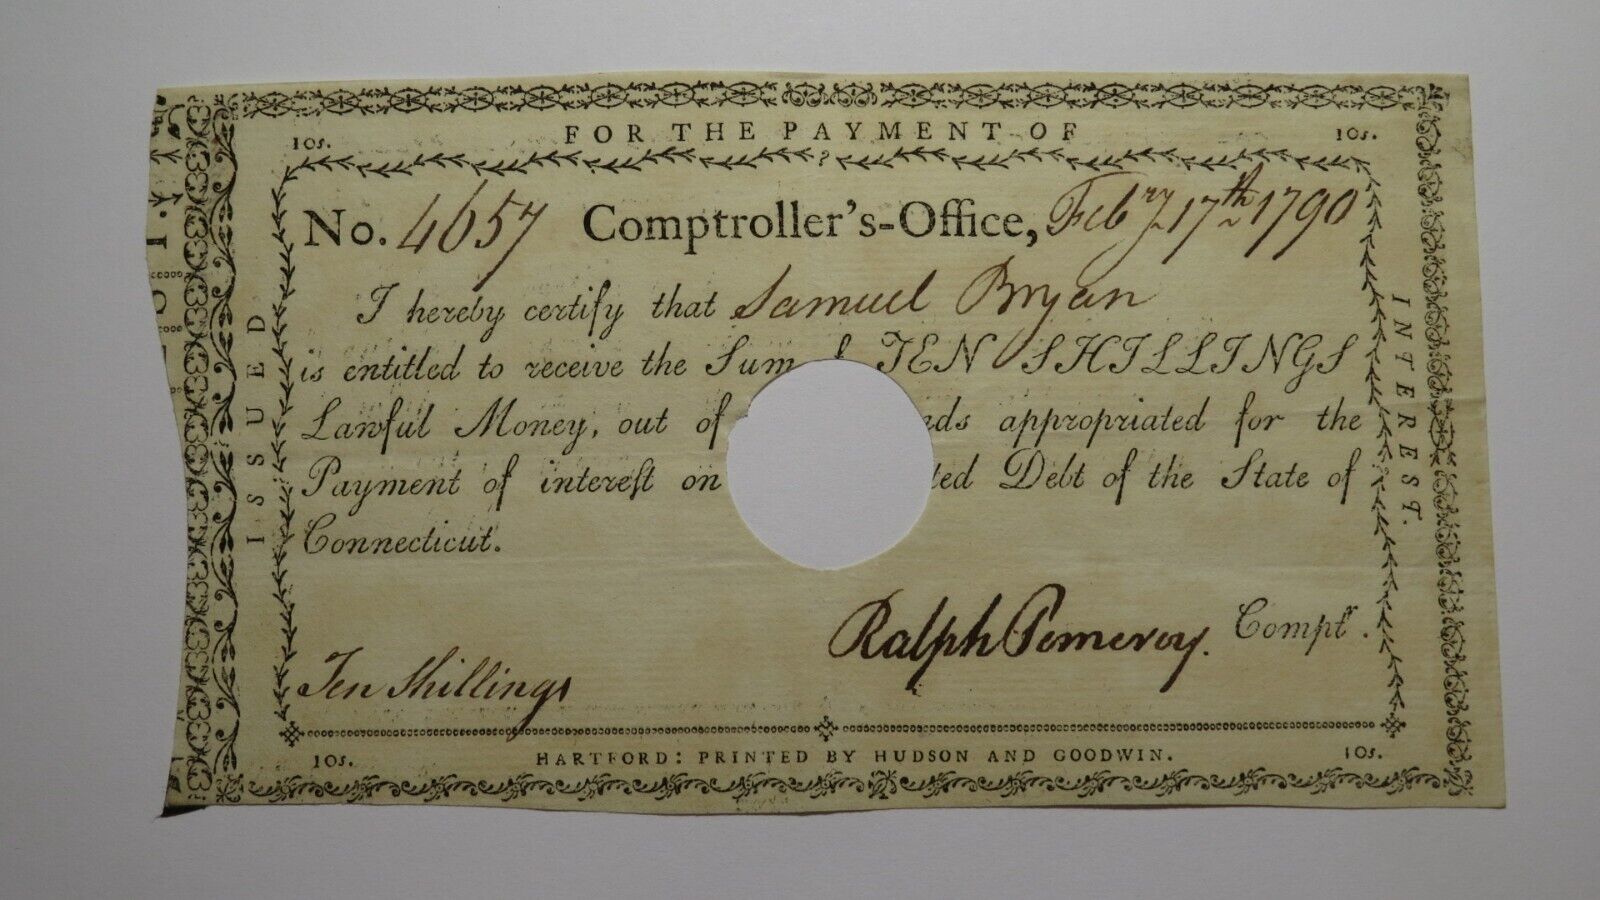 10s. FOR THE PAYMENT OF 10s.
No. 4657 Comptroller's-Office, Febry 17th 1790
I hereby certify that Samuel Bryan
is entitled to receive the Sum TEN SHILLINGS
Lawful Money, out of nds appropriated for the
Payment of intereſt on ted Debt of the State of
Connecticut.
Ralph Pomeroy. Comptr.
Ten Shillings
10s. HARTFORD: PRINTED BY HUDSON AND GOODWIN. 10s.
ISSUED
INTEREST.